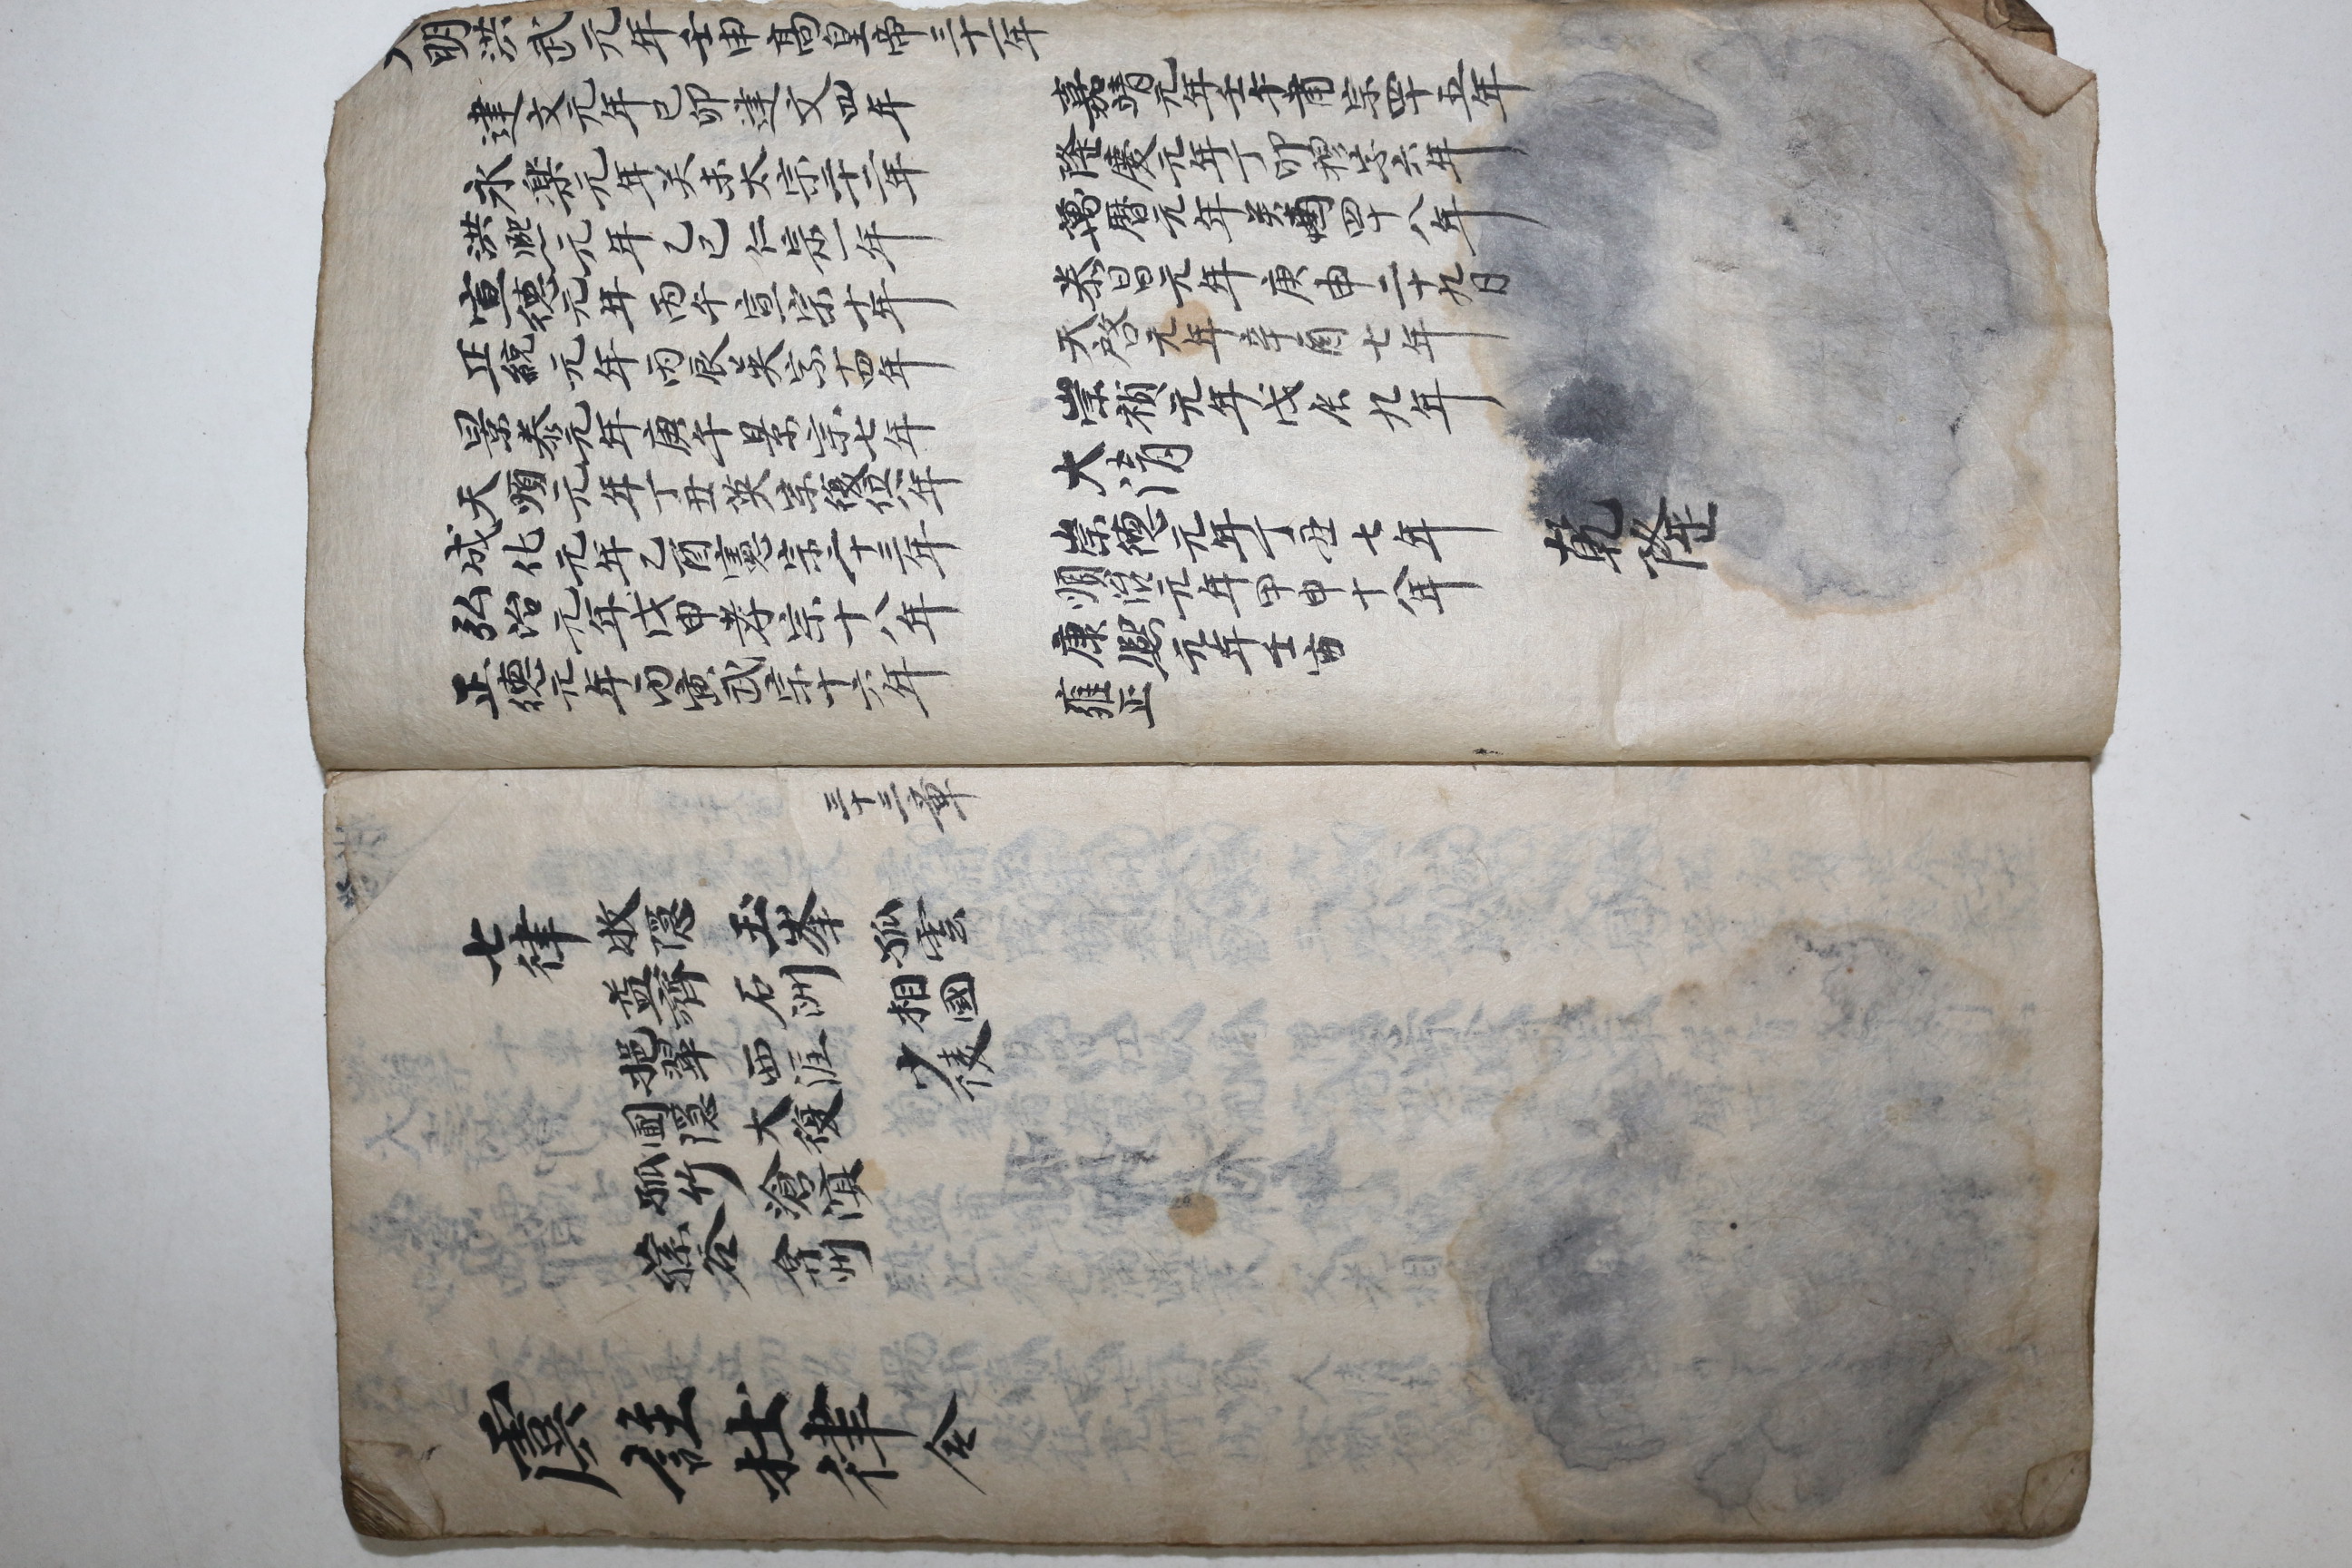 大明洪武元年壬申高皇帝三十一年
建文元年己卯建文四年
永楽元年癸未太宗二十二年
洪熙元年乙巳仁宗一年
宣德元年丙午宣宗十年
正統元年丙辰英宗十四年
景泰元年庚午景宗七年
天順元年丁丑英宗復位八年
成化元年乙酉憲宗二十三年
弘治元年戊申孝宗十八年
正德元年丙寅武宗十六年
嘉靖元年壬午肅宗四十五年
隆慶元年丁卯穆宗六年
萬曆元年癸酉四十八年
泰昌元年庚申二十九日
天啓元年辛酉七年
崇禎元年戊辰九年
大清
崇德元年丁丑七年
順治元年甲申十八年
康熙元年壬寅
雍正
乾隆
三十三章
七律 牧隱 玉峯 孤雲
益齋 石洲 相國
挹翠 西涯 少陵
圃隱 大復
孤竹 滄溟
蓀谷 弇州
虞註杜律全